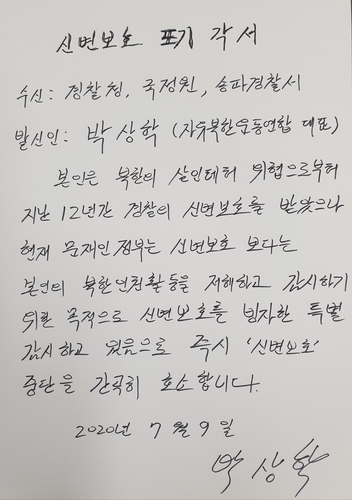 신변보호 포기 각서
수신: 경찰청, 국정원, 송파경찰서
발신인: 박상학 (자유북한운동연합 대표)
본인은 북한의 살인테러 위협으로부터
지난 12년간 경찰의 신변보호를 받았으나
현재 문재인정부는 신변보호 보다는
본연의 북한인권활동을 저해하고 감시하기
위한 목적으로 신변보호를 빙자한 특별
감시하고 있음으로 즉시 '신변보호'
중단을 간곡히 호소합니다.
2020년 7월 9일
박상학